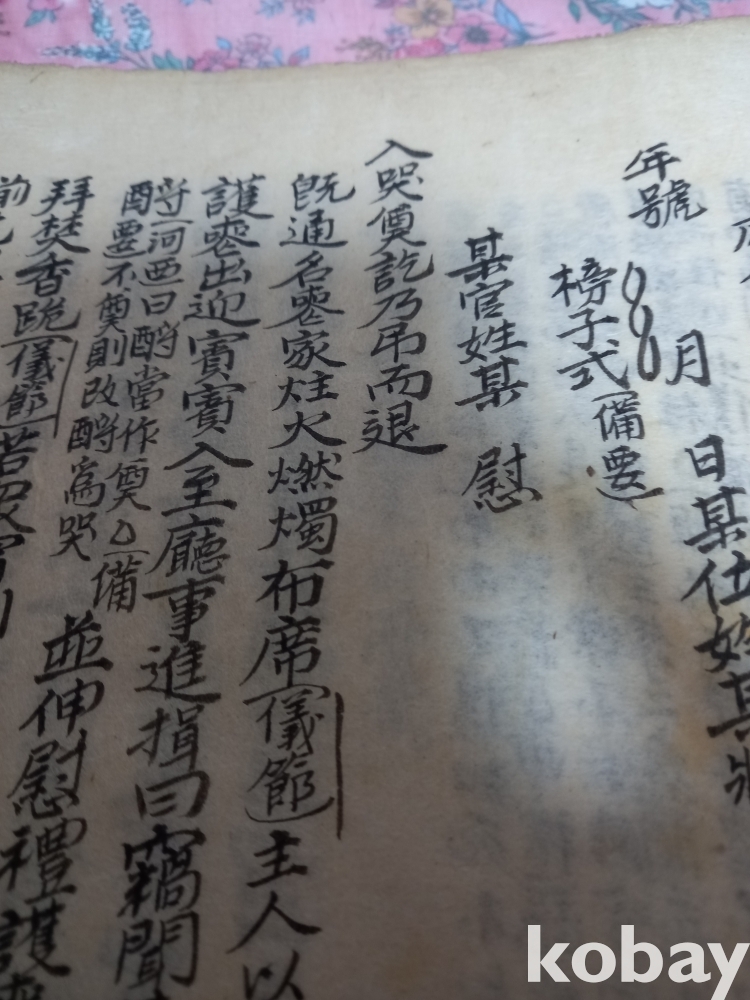 年號 月 日某仕姓某狀
榜子式(備要)
某官姓某 慰
入哭奠訖乃吊而退
旣通名喪家炷火燃燭布席(儀節)主人以
護喪出迎賓賓入至廳事進揖曰竊聞
酹(河西曰酹當作奠)(備
要不奠則改酹爲哭 並伸慰禮護
拜焚香跪(儀節)若衆賓則
前
kobay